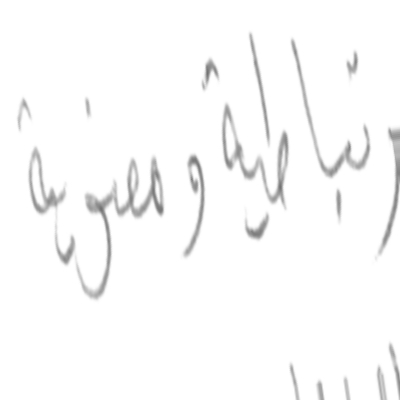 رتباطية ومعنوية